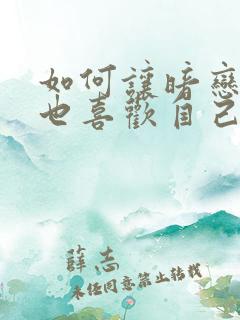 如何讓暗戀
也喜歡自己
薛志
未经同意禁止转载